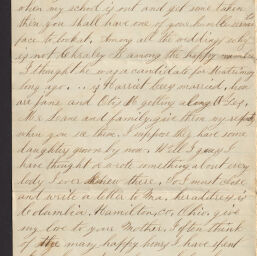 when my school is out and get some taken
then you shall have one of your humble
face to look at. Among all the weddings why
is not Charly B among the happy number
I thought he was a candidate for Matrimony
long ago. is Harriet Levy married, how
are fane and Otis W getting along
Mr Deane and family, give them my
when you see them. I suppose they have some
daughters grown by now. Well I guess I
have thought & wrote something about every
body I ever knew there, So I must close
and write a letter to Ma, her address is
Columbia, Hamilton, co, Ohio, give
my love to your Mother. I often think
of the many happy hours I have spent